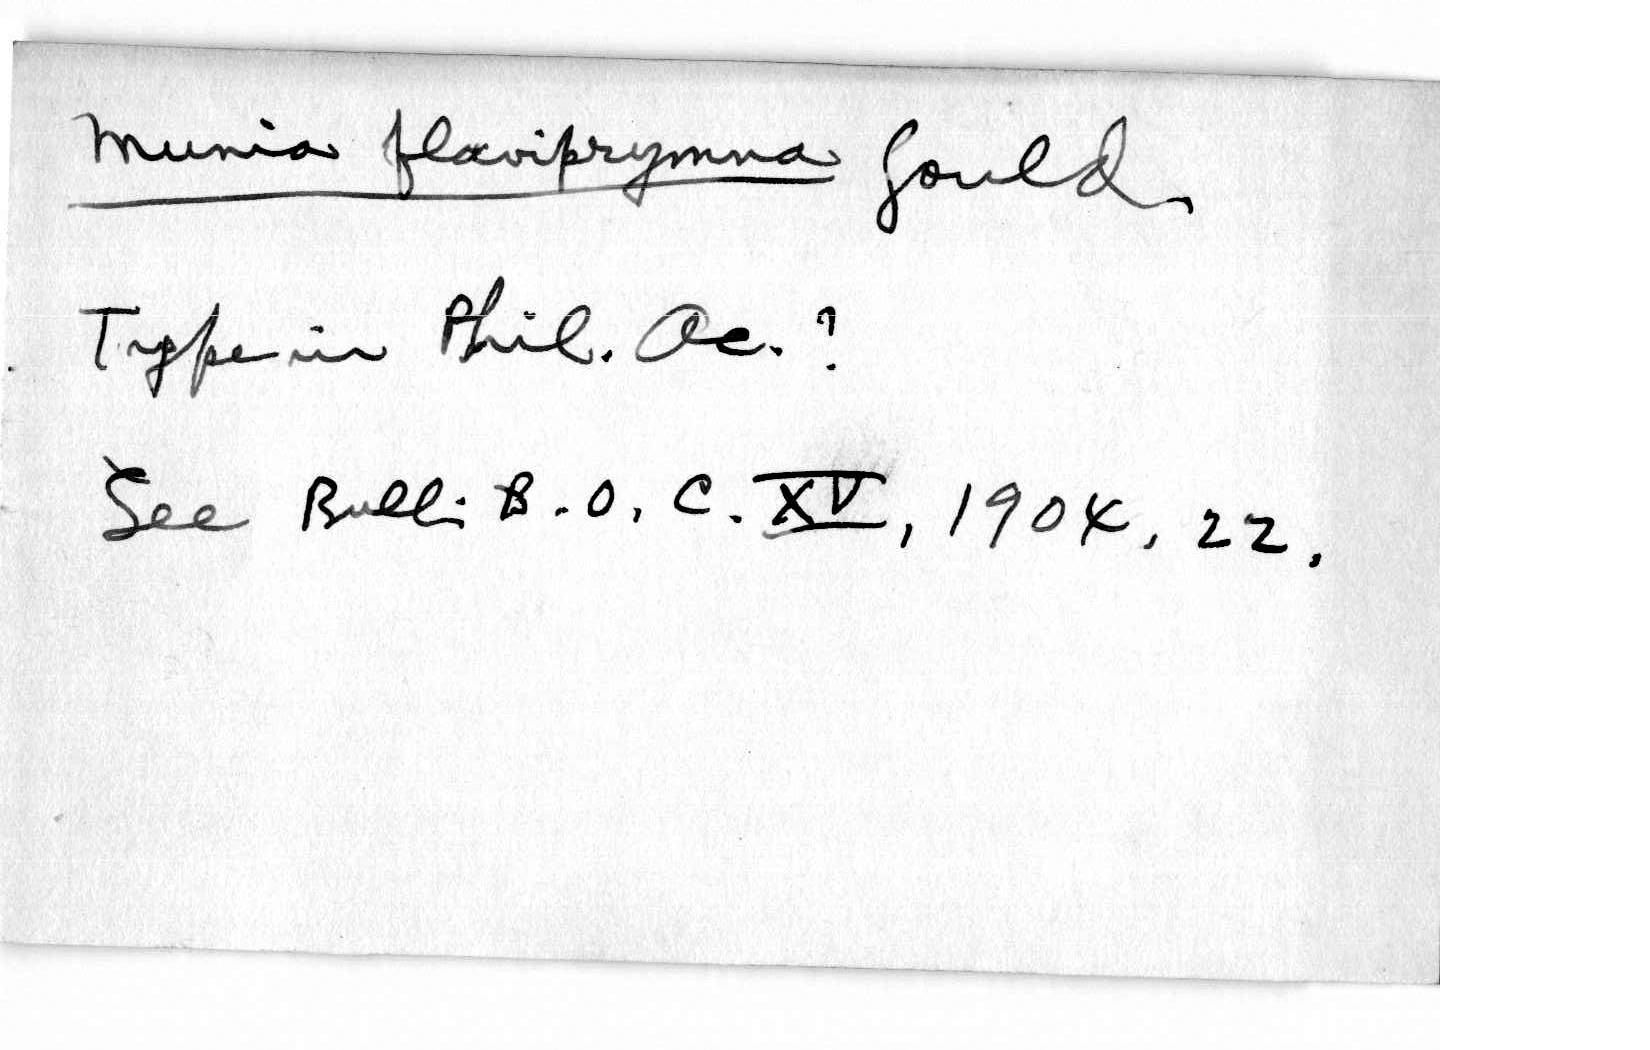 Munia flaviprymna Gould.
Type in Phil. Ac. ?
See Bull. B. O. C. XV, 1904, 22.